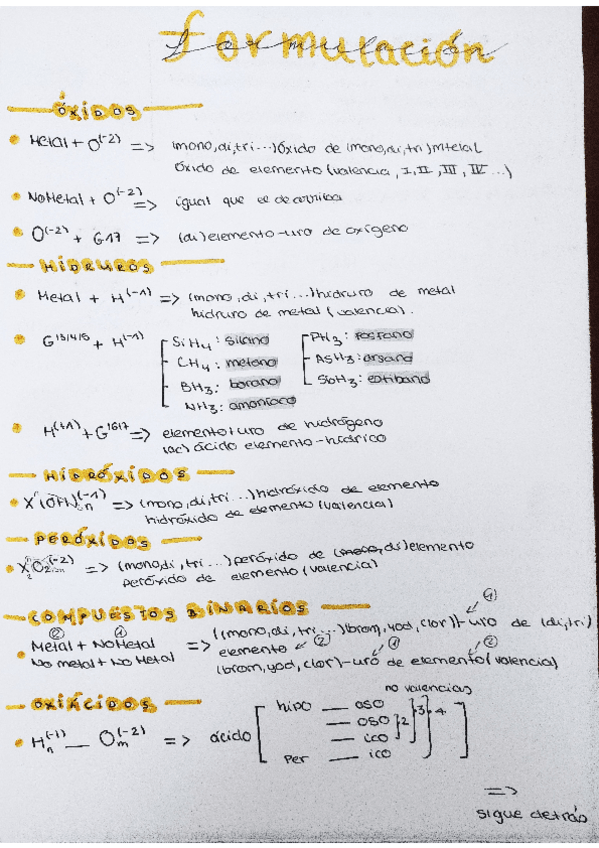 Formulación
ÓXIDOS
Metal + O(-2) => (mono, di, tri...) óxido de (mono, di, tri) metal
óxido de elemento (valencia, I, II, III, IV...)
No Metal + O(-2) => igual que el de arriba
O(-2) + G17 => (di) elemento-uro de oxígeno
HIDRUROS
Metal + H(-1) => (mono, di, tri...) hidruro de metal
hidruro de metal (valencia).
G13/14/15 + H(-1) SiH4: silano PH3: fosfano
CH4: metano AsH3: arsano
BH3: borano SbH3: estibano
NH3: amoníaco
H(+1) + G16/17 => elemento + uro de hidrógeno
(ac) ácido elemento-hídrico
HIDRÓXIDOS
Xn(OH)n(-1) => (mono, di, tri...) hidróxido de elemento
hidróxido de elemento (valencia)
PERÓXIDOS
X2O2(-2) => (mono, di, tri...) peróxido de (di) elemento
peróxido de elemento (valencia)
COMPUESTOS BINARIOS
② ① ①
Metal + No Metal => ((mono, di, tri...) (brom, yod, clor))-uro de (di, tri)
No metal + No Metal elemento ② ① ②
(brom, yod, clor)-uro de elemento (valencia)
OXIÁCIDOS
no valencias
Hn(-1) __ Om(-2) => ácido hipo __ oso 3 4
__ oso 2
__ ico
per __ ico
=>
sigue detrás